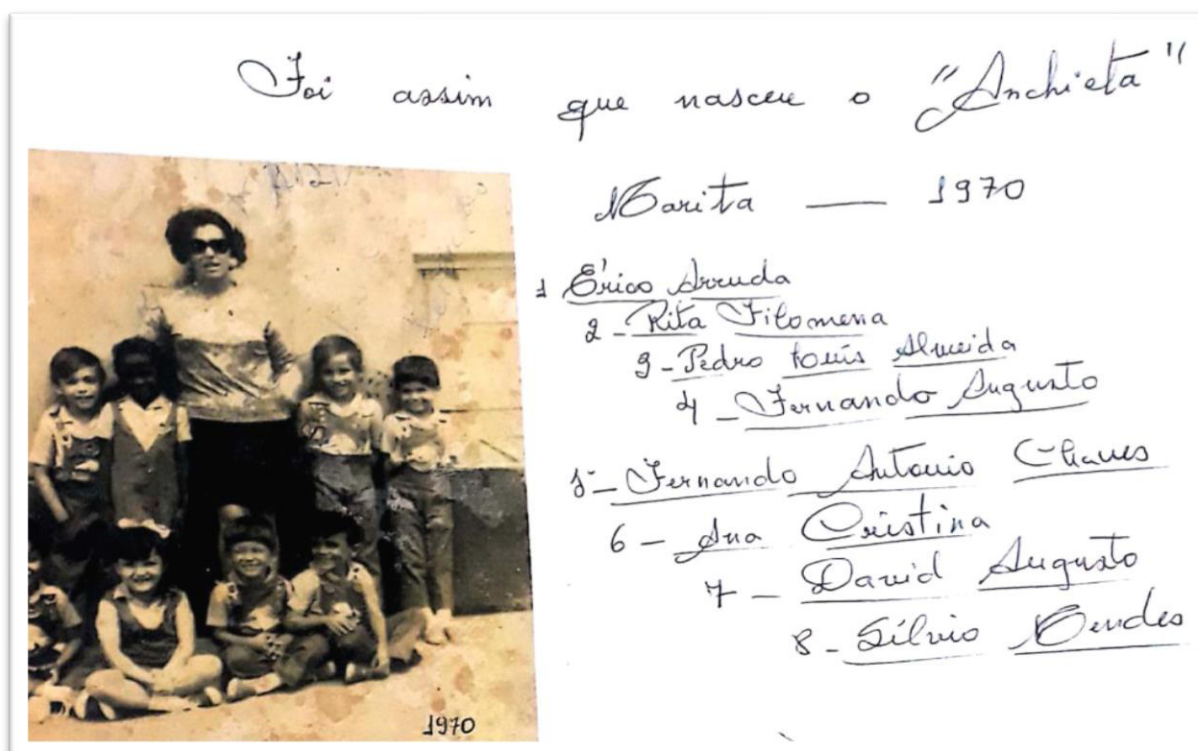 Foi assim que nasceu o "Anchieta"
Marita — 1970
1 Érico Arruda
2 - Rita Filomena
3 - Pedro Luís Almeida
4 - Fernando Augusto
5 - Fernando Antonio Chaves
6 - Ana Cristina
7 - David Augusto
8 - Sílvio Mendes
1970